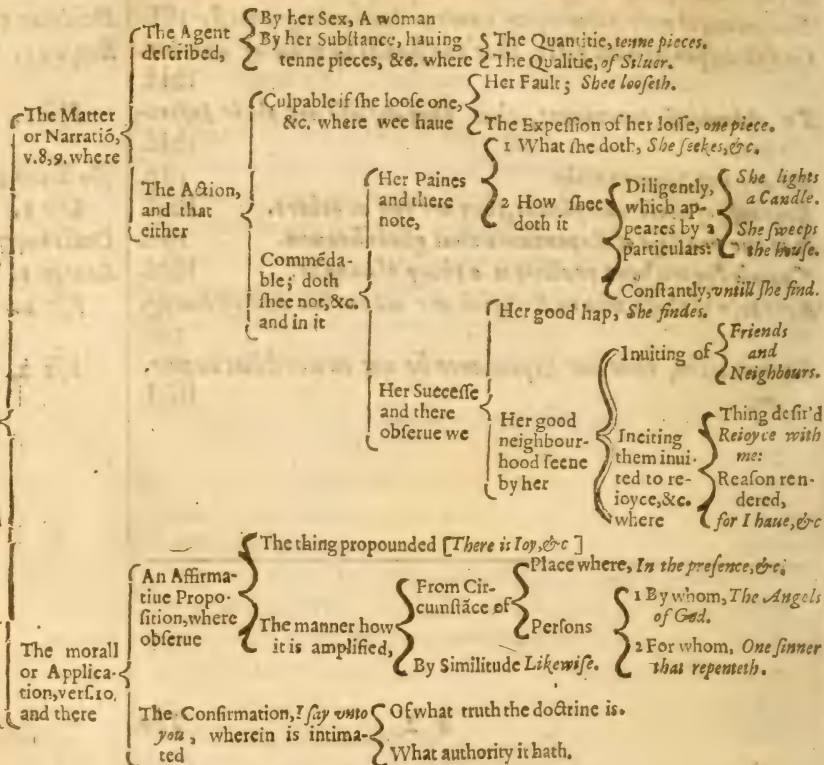 The Matter
or Narratiõ,
v.8,9. where
The Agent
described,
By her Sex, A woman
By her Substance, hauing
tenne pieces, &c. where
The Quantitie, tenne pieces.
The Qualitie, of Siluer.
The Action,
and that
either
Culpable if she loose one,
&c. where wee haue
Her Fault; Shee looseth.
The Expession of her losse, one piece.
Commẽda-
ble; doth
shee not, &c.
and in it
Her Paines
and there
note,
1 What she doth, She seekes, &c.
2 How shee
doth it
Diligently,
which ap-
peares by 2
particulars:
She lights
a Candle.
She sweeps
the house.
Constantly, vntill she find.
Her Successe
and there
obserue we
Her good hap, She findes.
Her good
neighbour-
hood seene
by her
Inuiting of
Friends
and
Neighbours.
Inciting
them inui-
ted to re-
ioyce, &c.
where
Thing desir'd
Reioyce with
me:
Reason ren-
dered,
for I haue, &c
The morall
or Applica-
tion, vers.10.
and there
An Affirma-
tiue Propo-
sition, where
obserue
The thing propounded [There is Ioy, &c ]
The manner how
it is amplified,
From Cir-
cumstãce of
Place where, In the presence, &c.
Persons
1 By whom, The Angels
of God.
2 For whom, One sinner
that repenteth.
By Similitude Likewise.
The Confirmation, I say vnto
you, wherein is intima-
ted
Of what truth the doctrine is.
What authority it hath.